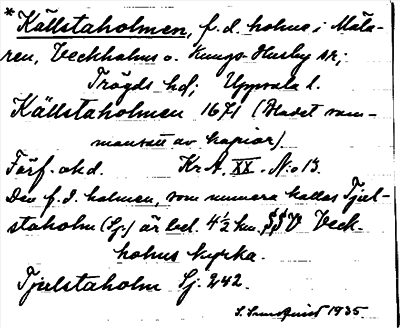 * Källstaholmen, f.d. holme i Mäla-
ren, Veckholms o. Kungs-Husby sn;
Trögds hd; Uppsala l.
Källstaholmen 1671 (Bladet sam-
mansatt av kopior).
Förf. okd. Kr A. XX. N:o 13.
Den f.d. holmen, som numera kallas Tjul-
staholm (Sj.) är bel. 4½ km. SSV Veck-
holms kyrka.
Tjulstaholm Sj. 242.
S. Sundquist 1935.